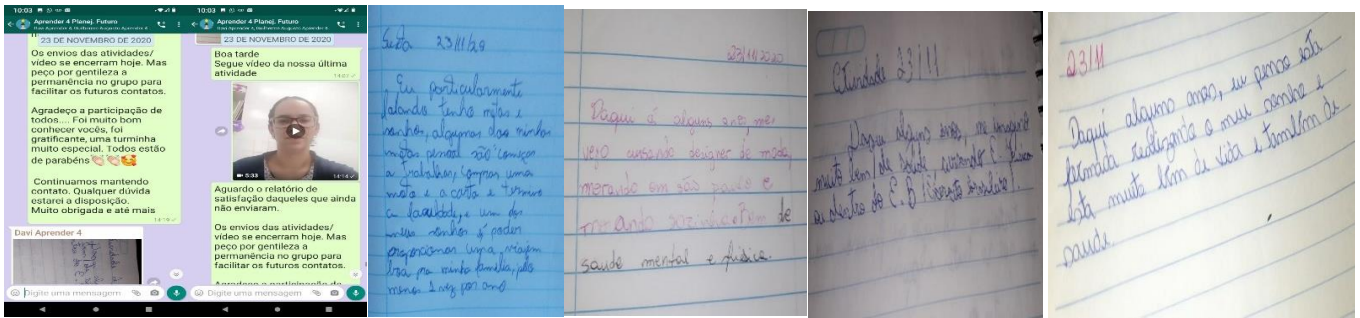 10:03
Aprender 4 Planej. Futuro
23 DE NOVEMBRO DE 2020
Os envios das atividades/
vídeo se encerram hoje. Mas
peço por gentileza a
permanência no grupo para
facilitar os futuros contatos.
Agradeço a participação de
todos.... Foi muito bom
conhecer vocês, foi
gratificante, uma turminha
muito especial. Todos estão
de parabéns👏👏🥰
Continuamos mantendo
contato. Qualquer dúvida
estarei a disposição.
Muito obrigada e até mais
Davi Aprender 4
Digite uma mensagem
10:03
Aprender 4 Planej. Futuro
23 DE NOVEMBRO DE 2020
Boa tarde
Segue vídeo da nossa última
atividade
5:33
14:14
Aguardo o relatório de
satisfação daqueles que ainda
não enviaram.
Os envios das atividades/
vídeo se encerram hoje. Mas
peço por gentileza a
permanência no grupo para
facilitar os futuros contatos.
Agradeço a participação de
Digite uma mensagem
23/11/20
Eu particularmente
falando tenho metas e
sonhos, algumas das minhas
metas pessoal são começar
a trabalhar, comprar uma
moto e a carta e terminar
a faculdade, e um dos
meus sonhos é poder
proporcionar uma viagem
boa pra minha família, pelo
menos 1 vez por ano
23/11/2020
Daqui á alguns anos, me
vejo cursando designer de moda,
morando em são paulo e
morando sozinha, bem de
saude mental e fisica.
Atividade 23/11
Daqui alguns anos, me imagino
muito bem de saúde
ou dentro do E.B (Exercito brasileiro).
23/11
Daqui alguns anos, eu penso esta
formada realizando o meu sonho e
esta muito bem de vida e também de
saude.